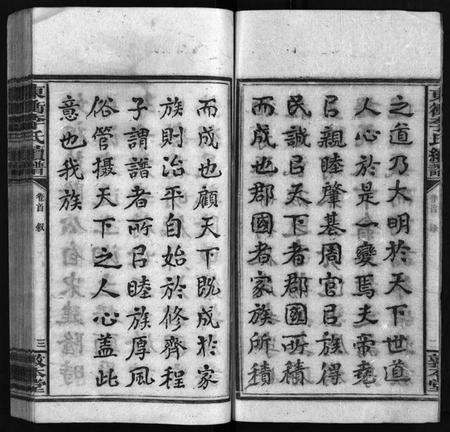 之道乃大明於天下世道
人心於是一變焉夫帝堯
㠯親睦肇基周官㠯族得
民誠㠯天下者郡國所積
而成也郡國者家族所積
而成也顧天下既成於家
族則治平自始於修齊程
子謂譜者所㠯睦族厚風
俗管攝天下之人心蓋此
意也我族
東衝李氏續譜
卷首 敘
三